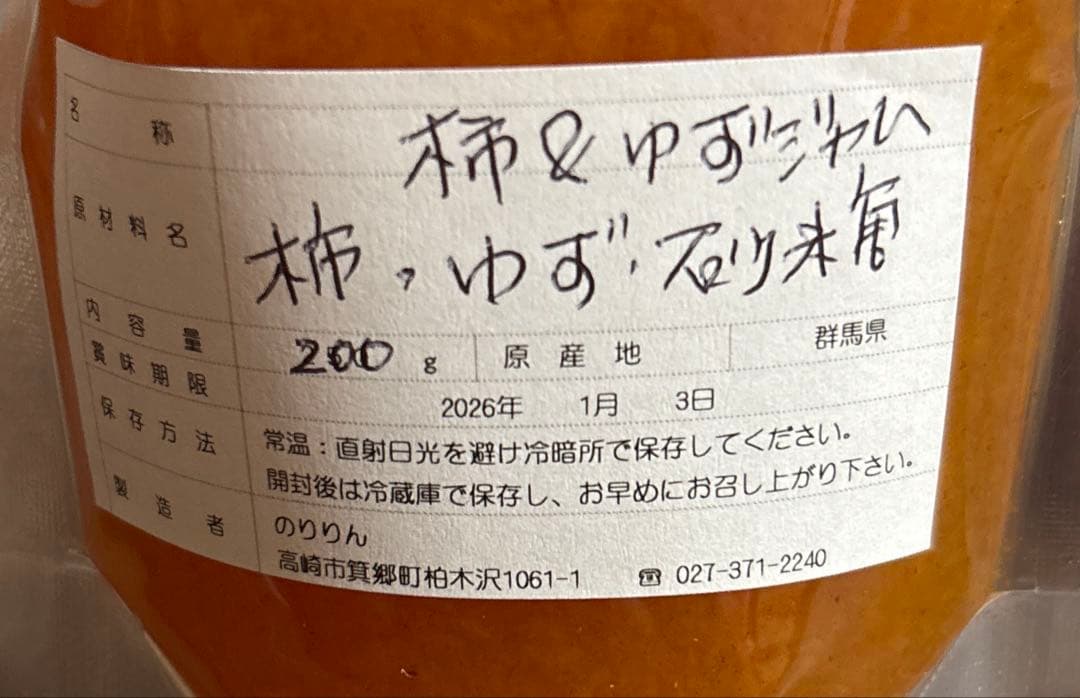 名称 柿&ゆずジャム
原材料名 柿,ゆず,砂糖
内容量 200g 原産地 群馬県
賞味期限 2026年 1月 3日
保存方法 常温:直射日光を避け冷暗所で保存してください。
開封後は冷蔵庫で保存し、お早めにお召し上がり下さい。
製造者 のりりん
高崎市箕郷町柏木沢1061-1 ☎ 027-371-2240